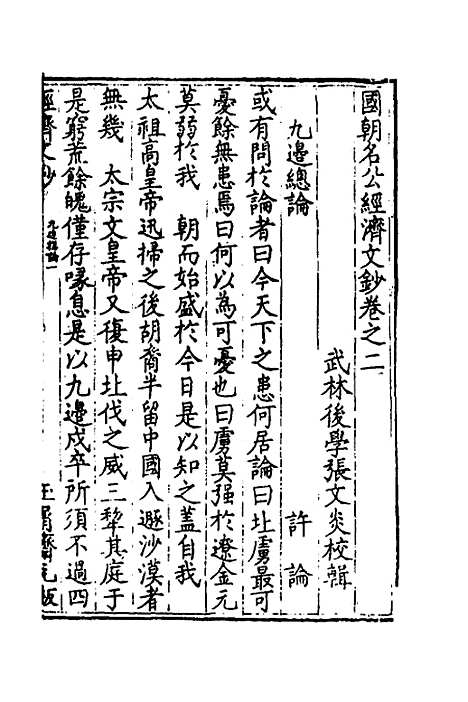 國朝名公經濟文鈔卷之二
武林後學張文炎校輯
九邊總論
許論
或有問於論者曰今天下之患何居論曰北虜最可
憂餘無患焉曰何以為可憂也曰虜莫强於遼金元
莫弱於我　朝而始盛於今日是以知之蓋自我
太祖高皇帝迅掃之後胡裔半留中國入遯沙漠者
無幾　太宗文皇帝又復申北伐之威三犂其庭于
是窮荒餘魄僅存喙息是以九邊戍卒所須不過四
經濟文鈔
九邊總論一
玉屑齋